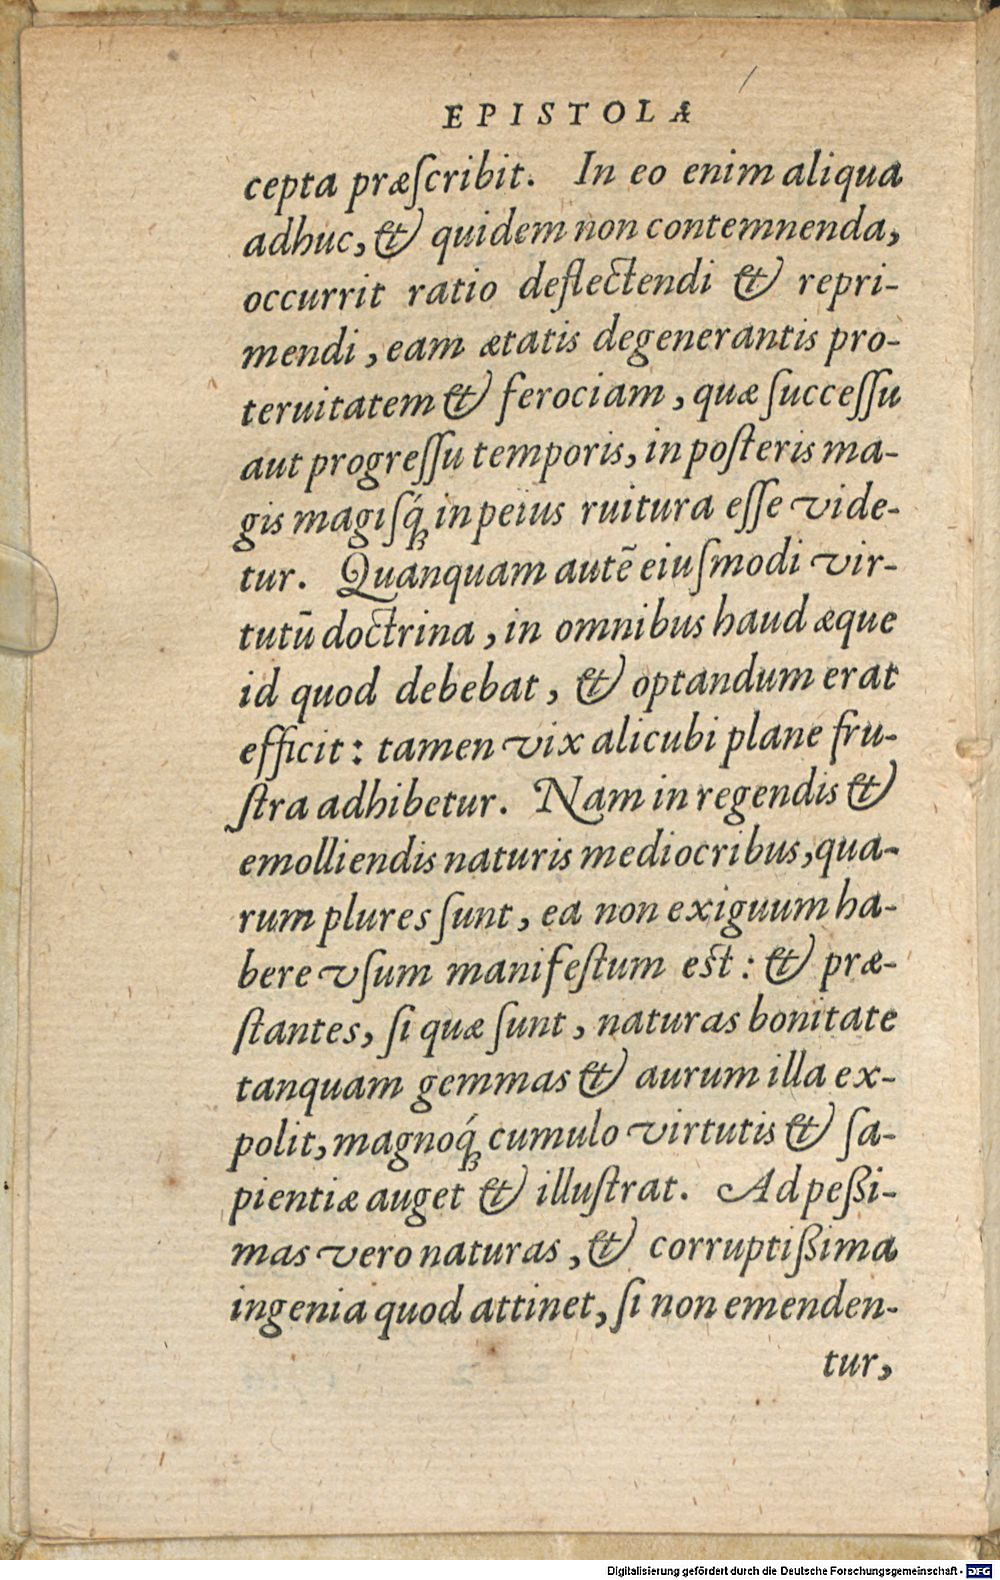 EPISTOLA
cepta præſcribit. In eo enim aliqua
adhuc, & quidem non contemnenda,
occurrit ratio deflectendi & repri-
mendi, eam ætatis degenerantis pro-
teruitatem & ferociam, quæ ſucceſſu
aut progreſſu temporis, in poſteris ma-
gis magiſq́; in peius ruitura eſſe vide-
tur. Quanquam autẽ eiuſmodi vir-
tutũ doctrina, in omnibus haud æque
id quod debebat, & optandum erat
efficit: tamen vix alicubi plane fru-
ſtra adhibetur. Nam in regendis &
emolliendis naturis mediocribus, qua-
rum plures ſunt, ea non exiguum ha-
bere vſum manifeſtum est: & præ-
ſtantes, ſi quæ ſunt, naturas bonitate
tanquam gemmas & aurum illa ex-
polit, magnoq́; cumulo virtutis & ſa-
pientiæ auget & illuſtrat. Ad peßi-
mas vero naturas, & corruptißima
ingenia quod attinet, ſi non emenden-
tur,
Digitalisierung gefördert durch die Deutsche Forschungsgemeinschaft - DFG